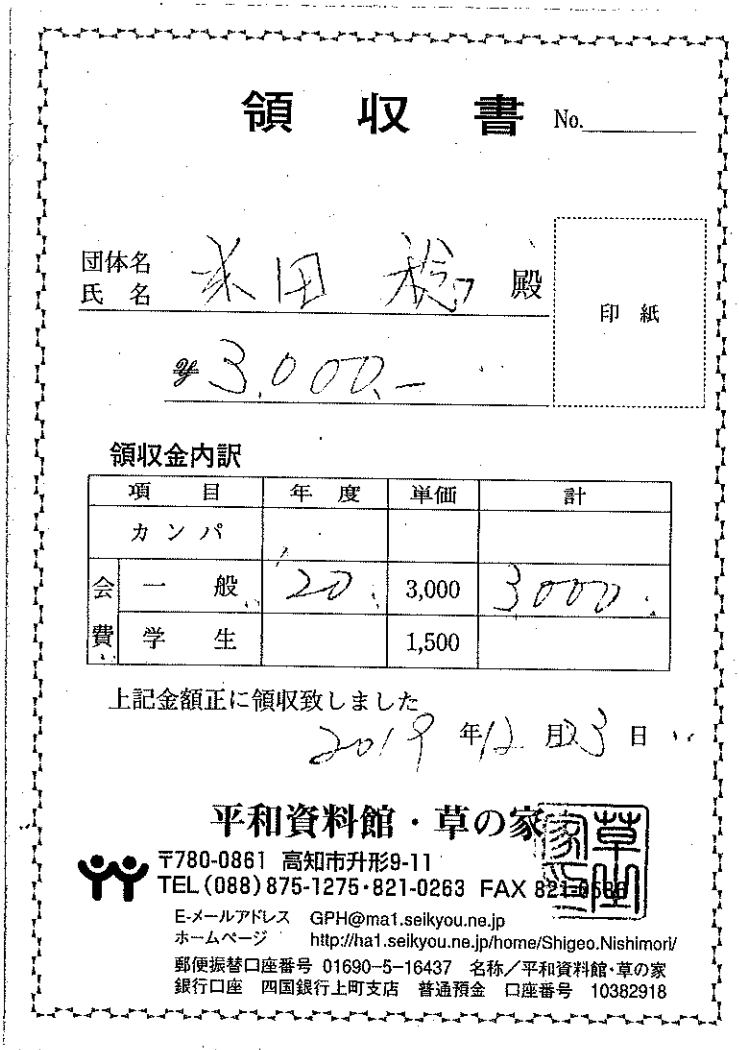 領 収 書 No.
団体名
氏 名 米田 稔 殿
印 紙
¥3,000.-
領収金内訳
項 目 年 度 単価 計
カ ン パ
会費 一 般 '20 3,000 3000
学 生 1,500
上記金額正に領収致しました
2019 年 12 月 23 日
平和資料館・草の家
〒780-0861 高知市升形9-11
TEL(088)875-1275・821-0263 FAX 821-0586
E-メールアドレス GPH@ma1.seikyou.ne.jp
ホームページ http://ha1.seikyou.ne.jp/home/Shigeo.Nishimori/
郵便振替口座番号 01690-5-16437 名称/平和資料館・草の家
銀行口座 四国銀行上町支店 普通預金 口座番号 10382918